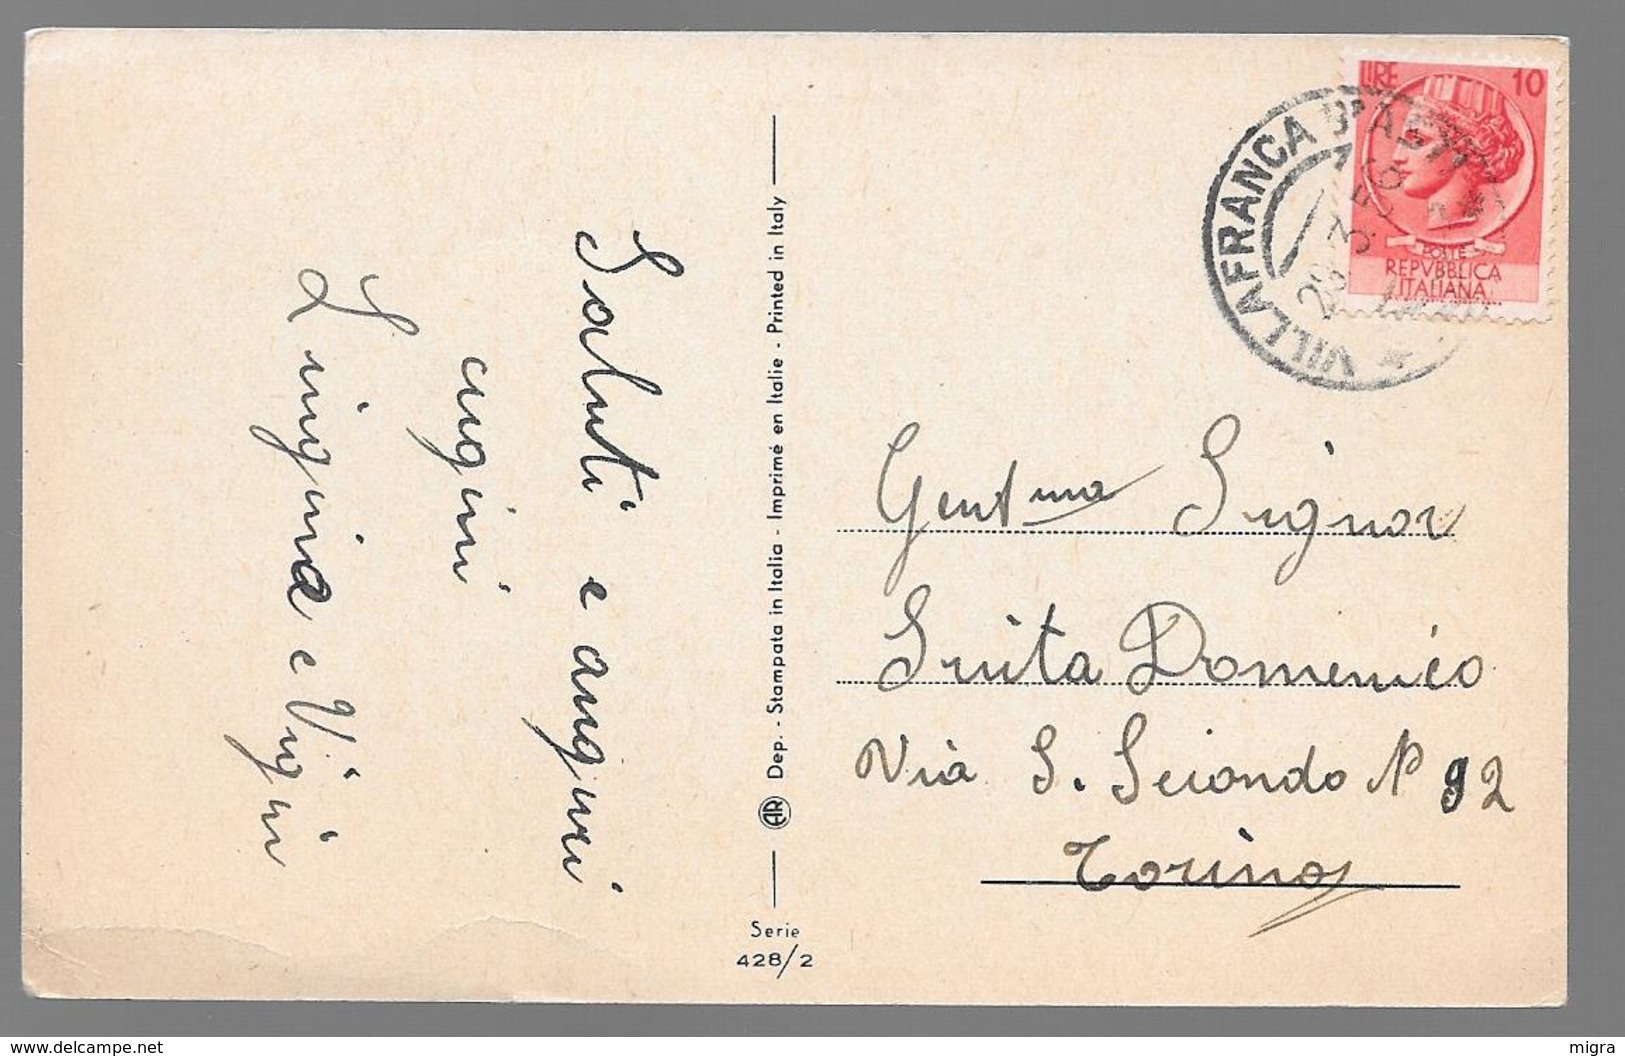 Saluti e auguri
cugini
Luigina e Vigin
Dep. - Stampata in Italia - Imprimé en Italie - Printed in Italy
AR
Serie
428/2
LIRE 10
POSTE
REPVBBLICA
ITALIANA
VILLAFRANCA D'ASTI
28.3.56
Gent ma Signor
Domenico
Via S. Secondo N 92
Torino
www.delcampe.net
migra